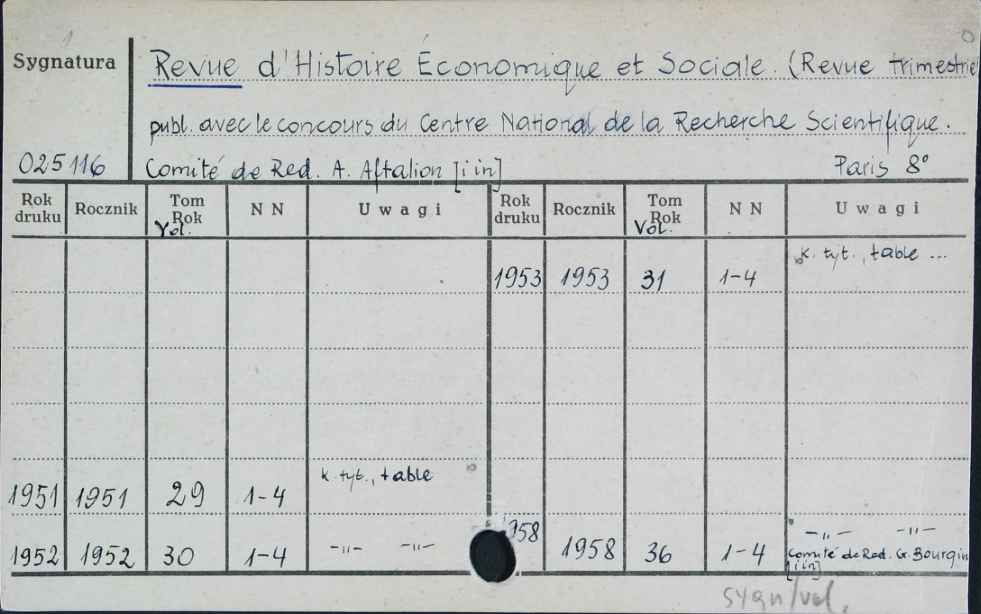 Sygnatura
Revue d'Histoire Économique et Sociale. (Revue trimestrie
publ. avec le concours du Centre National de la Recherche Scientifique.
025116 Comité de Red. A. Aftalion [i in] Paris 8°
Rok druku Rocznik Tom Rok Vol. N N Uwagi Rok druku Rocznik Tom Rok Vol. N N Uwagi
1953 1953 31 1-4 k. tyt., table ...
1951 1951 29 1-4 k. tyt., table
1952 1952 30 1-4 -"- -"- 1958 1958 36 1-4 -"- -"-
Comité de Red. G. Bourgin
[i in]
sygn/vol.